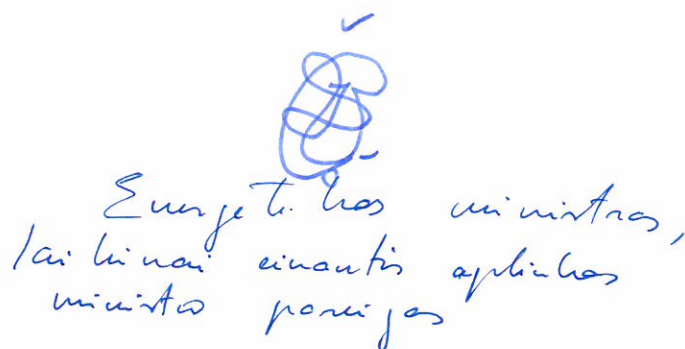 Energetikos ministras,
laikinai einantis aplinkos
ministro pareigas